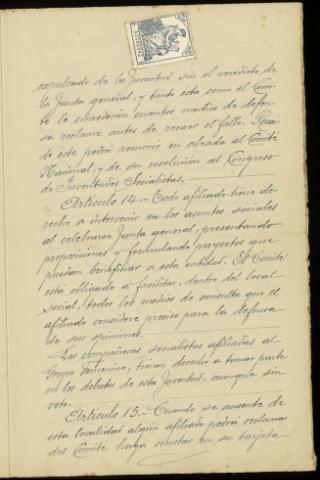 expulsado de la Juventud sin el veredicto de
la Junta general, y tanto esta como el Comi-
té le concederán cuantos medios de defen-
sa reclame antes de recaer el fallo. Recaí-
do éste podrá recurrir en alzada al Comité
Nacional, y de su resolución al Congreso
de Juventudes Socialistas.
Artículo 14.- Todo afiliado tiene de-
recho a intervenir en los asuntos sociales
al celebrarse Junta general, presentando
proposiciones y formulando proyectos que
puedan beneficiar a esta entidad. El Comité
está obligado a facilitar, dentro del local
social, todos los medios de consulta que el
afiliado considere preciso para la defensa
de sus opiniones.
Las compañeras socialistas afiliadas al
Grupo Femenino, tienen derecho a tomar parte
en los debates de esta Juventud, aunque sin
voto.
Artículo 15.- Cuando se ausente de
esta localidad algún afiliado podrá reclamar
del Comité haga constar en su tarjeta